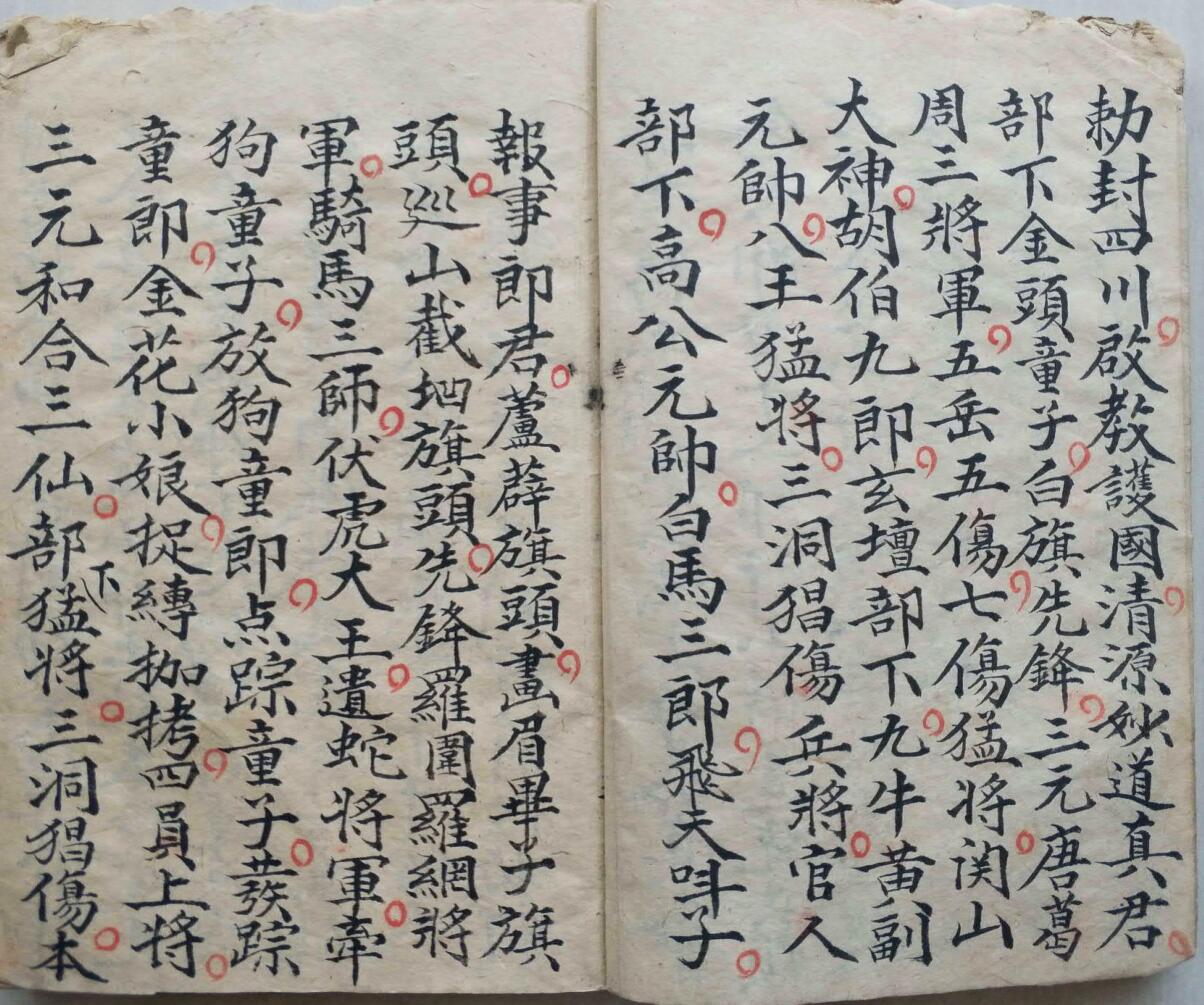 勅封四川啟教護國清源妙道真君
部下金頭童子白旗先鋒三元唐葛
周三將軍五岳五傷七傷猛将関山
大神胡伯九郎玄壇部下九牛黄副
元帥八王猛将三洞猖傷兵將官人
部下高公元帥白馬三郎飛天哶子
報事郎君蘆薜旗頭畫眉畢子旗
頭巡山截地旗頭先鋒羅圍羅網將
軍騎馬三師伏虎大王遺蛇將軍牽
狗童子放狗童郎点踪童子發踪
童郎金花小娘捉縳拁拷四員上将
三元和合三仙部下猛将三洞猖傷本